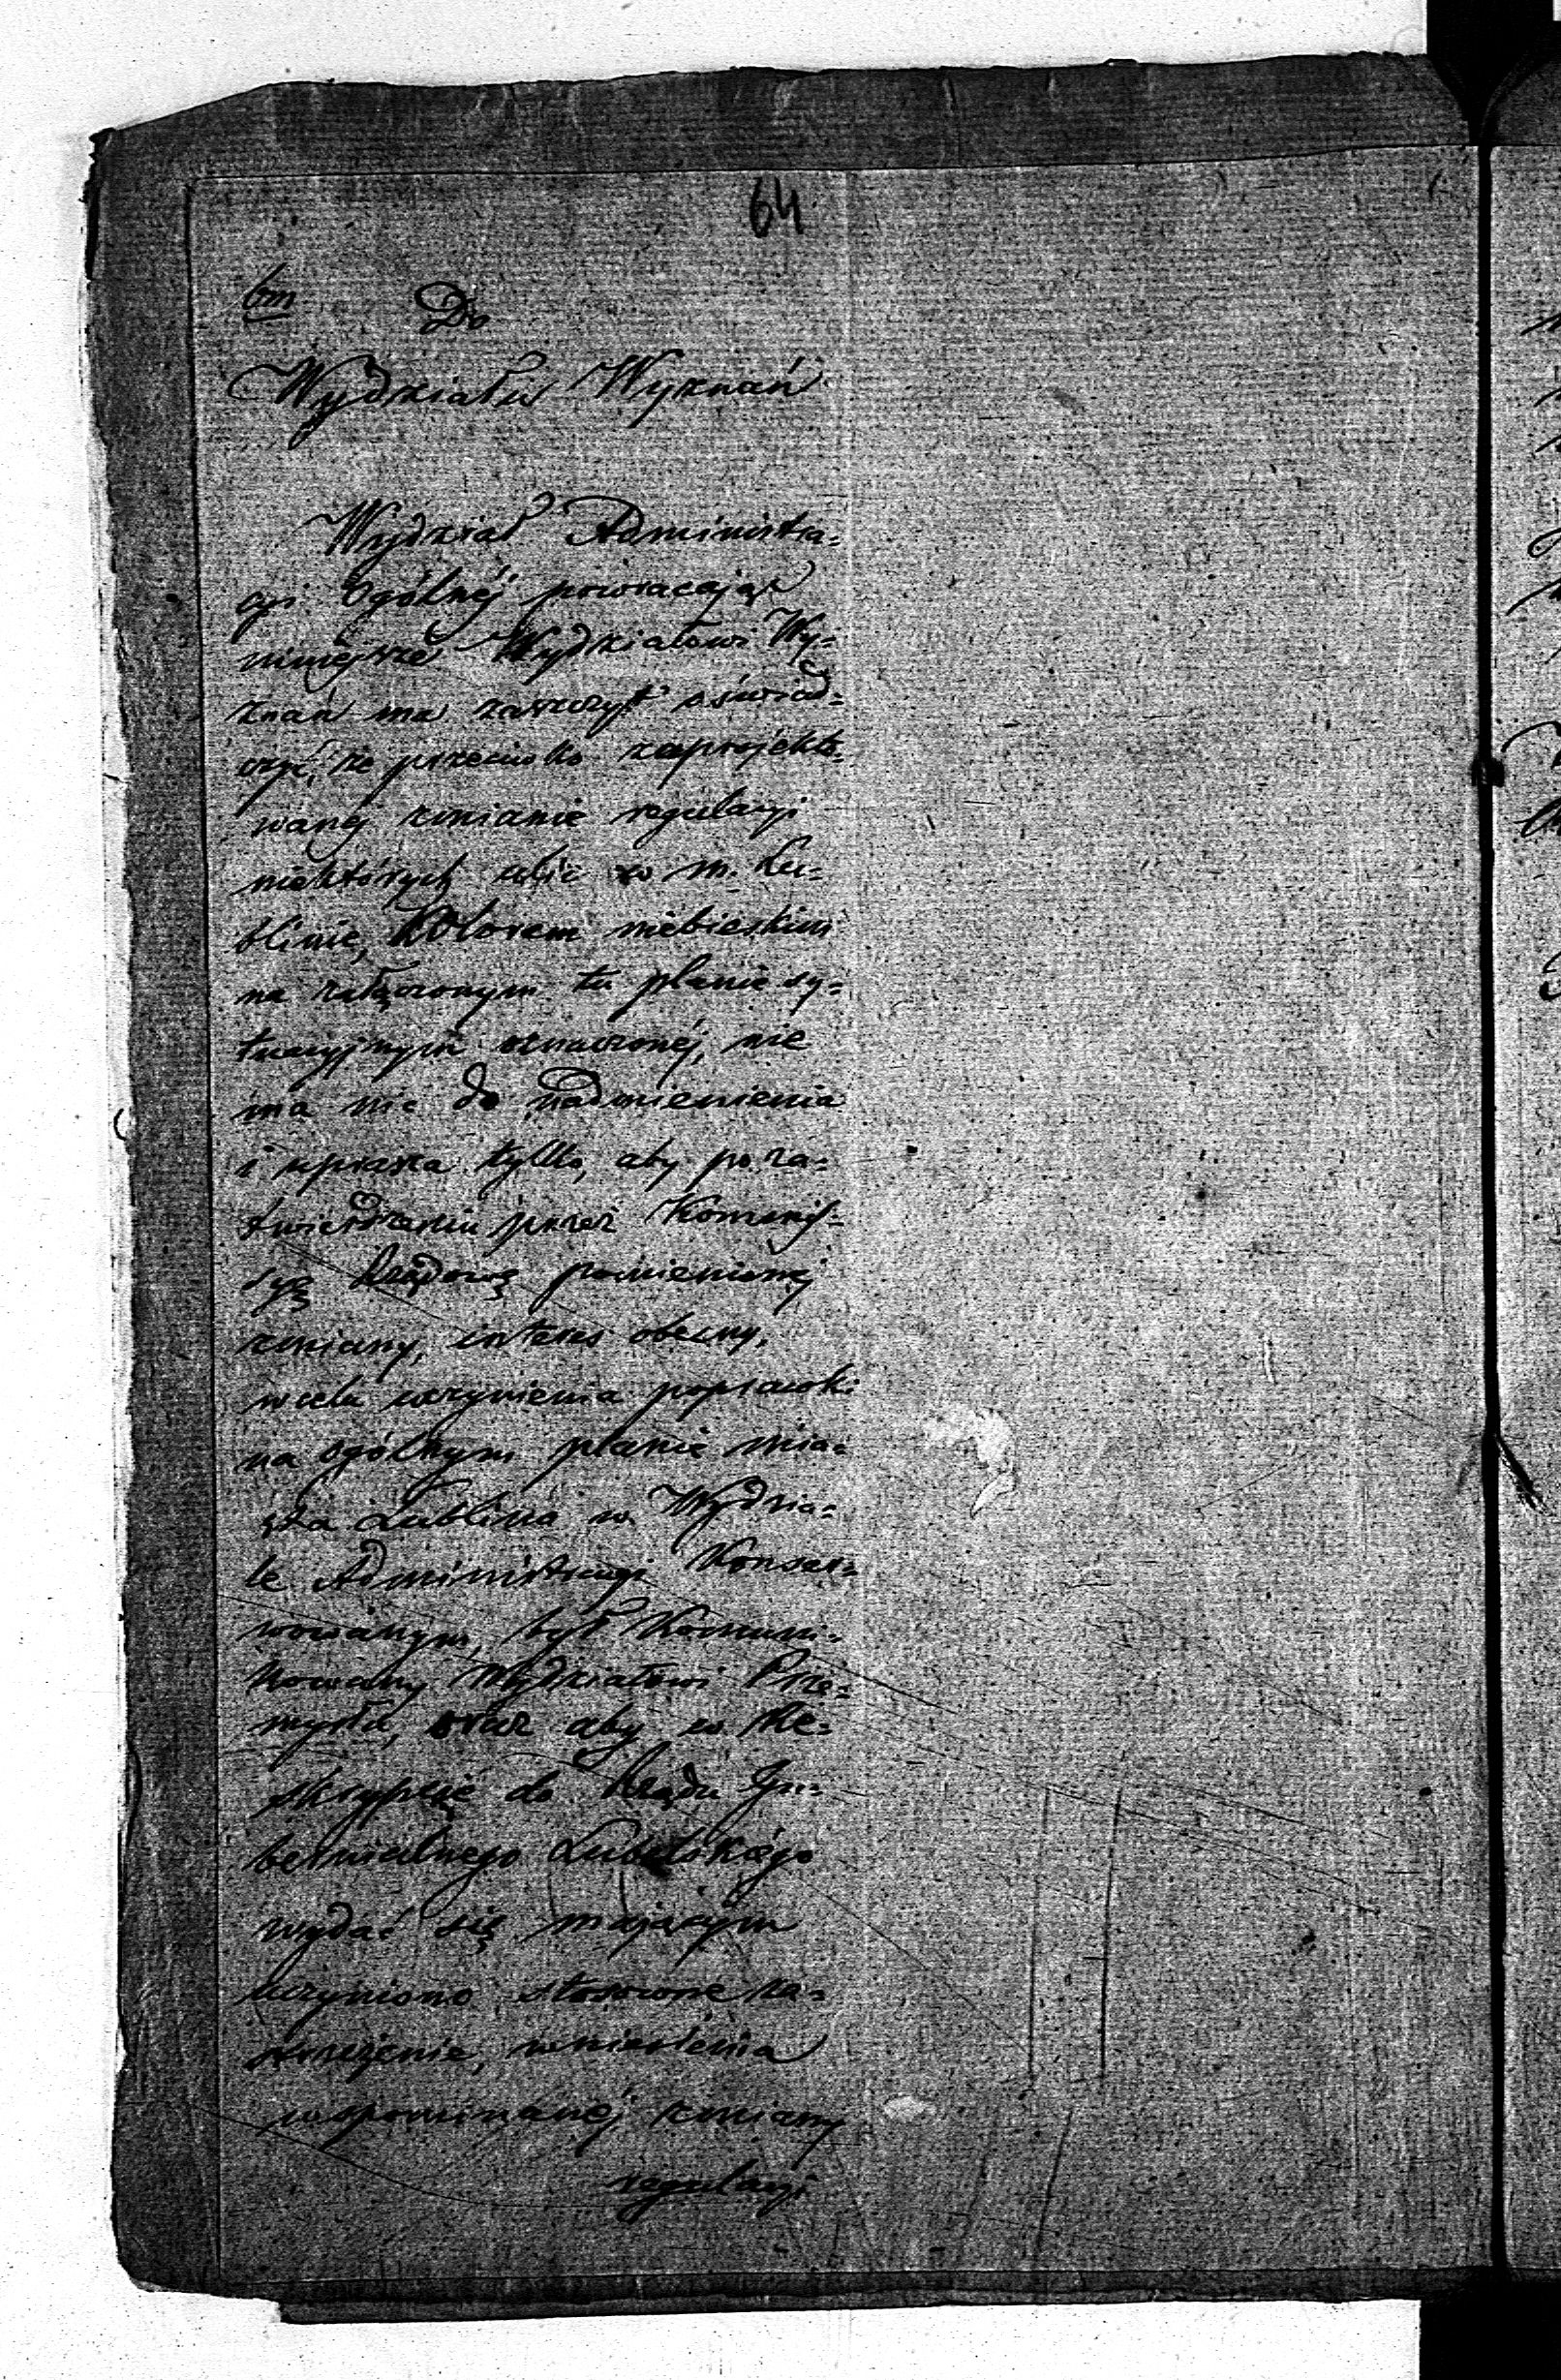 64
bm
Do
Wydziału Wyznań
Wydział Administra=
cyi Ogólnéj powracając
niniejsze Wydziałowi Wy=
znań ma zaszczyt oświad=
czyć, że przeciwko zaprojekto=
wanéj zmianie regulacyi
niektórych ulic w m. Lu=
blinie, kolorem niebieskim
na załączonym tu planie sy=
tuacyjnym oznaczonéj, nie
ma nic do nadmienienia
i uprasza tylko, aby po za=
twierdzeniu przez Kommis=
syę Rządową pomienionéj
zmiany, interes obecny,
w celu uczynienia poprawki
na ogólnym planie mia=
sta Lublina w Wydzia=
le Administracyi konser=
wowanym, był kommuni=
kowany Wydziałowi Prze=
mysłu, oraz aby w Re=
skrypcie do Rządu Gu=
bernialnego Lubelskiego
wydać się mającym
uczyniono stosowne za=
strzeżenie, wniesienia
wspominanéj zmiany
regulacyi